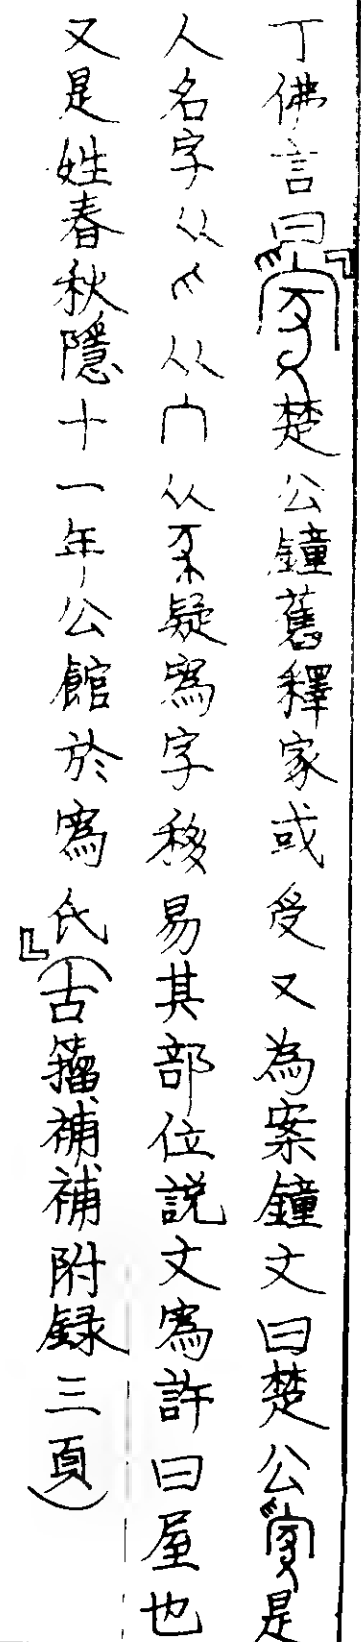 丁佛言曰『楚公鐘舊釋家或受又為案鐘文曰楚公是
人名字从从宀从疑寪字移易其部位說文寪許曰屋也
又是姓春秋隱十一年公館於寪氏』(古籀補補附録三頁)